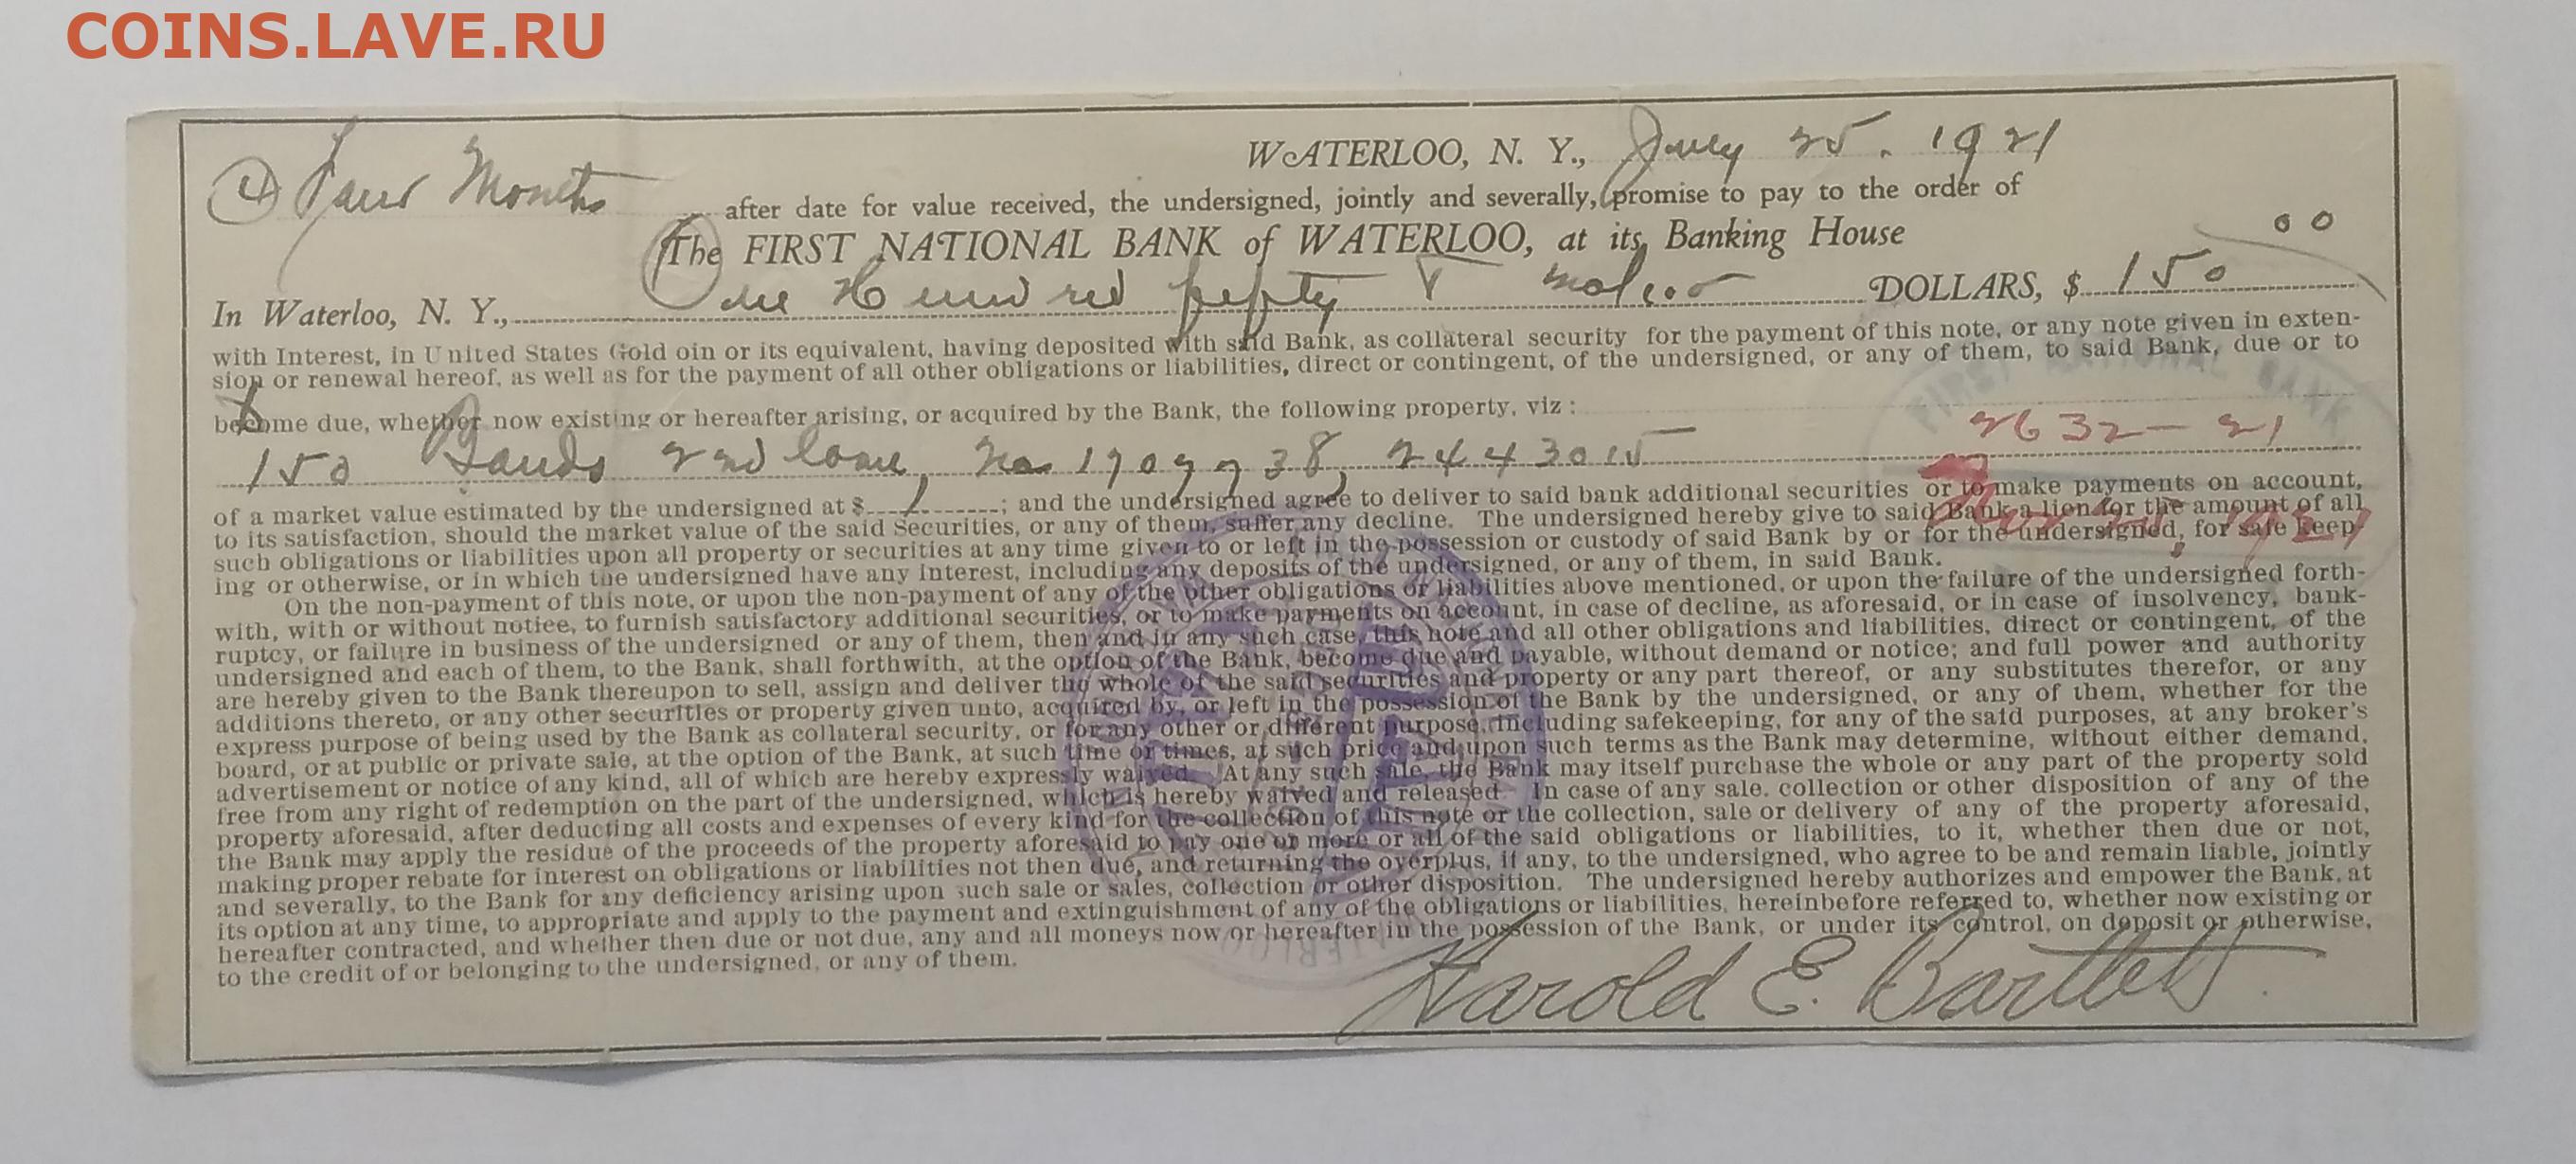 COINS.LAVE.RU
WATERLOO, N. Y., July 25. 1921
4 Four Months after date for value received, the undersigned, jointly and severally, promise to pay to the order of
The FIRST NATIONAL BANK of WATERLOO, at its Banking House
In Waterloo, N. Y., One Hundred fifty & no/100 DOLLARS, $ 150 00
with Interest, in United States Gold oin or its equivalent, having deposited with said Bank, as collateral security for the payment of this note, or any note given in exten-
sion or renewal hereof, as well as for the payment of all other obligations or liabilities, direct or contingent, of the undersigned, or any of them, to said Bank, due or to
become due, whether now existing or hereafter arising, or acquired by the Bank, the following property, viz :
FIRST NATIONAL BANK
2632-21
150 Bonds 2nd loan,
of a market value estimated by the undersigned at $ ; and the undersigned agree to deliver to said bank additional securities or to make payments on account,
to its satisfaction, should the market value of the said Securities, or any of them, suffer any decline. The undersigned hereby give to said Bank a lien for the amount of all
such obligations or liabilities upon all property or securities at any time given to or left in the possession or custody of said Bank by or for the undersigned, for safe keep
ing or otherwise, or in which the undersigned have any interest, including any deposits of the undersigned, or any of them, in said Bank.
On the non-payment of this note, or upon the non-payment of any of the other obligations or liabilities above mentioned, or upon the failure of the undersigned forth-
with, with or without notice, to furnish satisfactory additional securities, or to make payments on account, in case of decline, as aforesaid, or in case of insolvency, bank-
ruptcy, or failure in business of the undersigned or any of them, then and in any such case, this note and all other obligations and liabilities, direct or contingent, of the
undersigned and each of them, to the Bank, shall forthwith, at the option of the Bank, become due and payable, without demand or notice; and full power and authority
are hereby given to the Bank thereupon to sell, assign and deliver the whole of the said securities and property or any part thereof, or any substitutes therefor, or any
additions thereto, or any other securities or property given unto, acquired by, or left in the possession of the Bank by the undersigned, or any of them, whether for the
express purpose of being used by the Bank as collateral security, or for any other or different purpose, including safekeeping, for any of the said purposes, at any broker's
board, or at public or private sale, at the option of the Bank, at such time or times, at such price and upon such terms as the Bank may determine, without either demand,
advertisement or notice of any kind, all of which are hereby expressly waived. At any such sale, the Bank may itself purchase the whole or any part of the property sold
free from any right of redemption on the part of the undersigned, which is hereby waived and released. In case of any sale, collection or other disposition of any of the
property aforesaid, after deducting all costs and expenses of every kind for the collection of this note or the collection, sale or delivery of any of the property aforesaid,
the Bank may apply the residue of the proceeds of the property aforesaid to pay one or more or all of the said obligations or liabilities, to it, whether then due or not,
making proper rebate for interest on obligations or liabilities not then due, and returning the overplus, if any, to the undersigned, who agree to be and remain liable, jointly
and severally, to the Bank for any deficiency arising upon such sale or sales, collection or other disposition. The undersigned hereby authorizes and empower the Bank, at
its option at any time, to appropriate and apply to the payment and extinguishment of any of the obligations or liabilities, hereinbefore referred to, whether now existing or
hereafter contracted, and whether then due or not due, any and all moneys now or hereafter in the possession of the Bank, or under its control, on deposit or otherwise,
to the credit of or belonging to the undersigned, or any of them.
Harold E. Bartlett